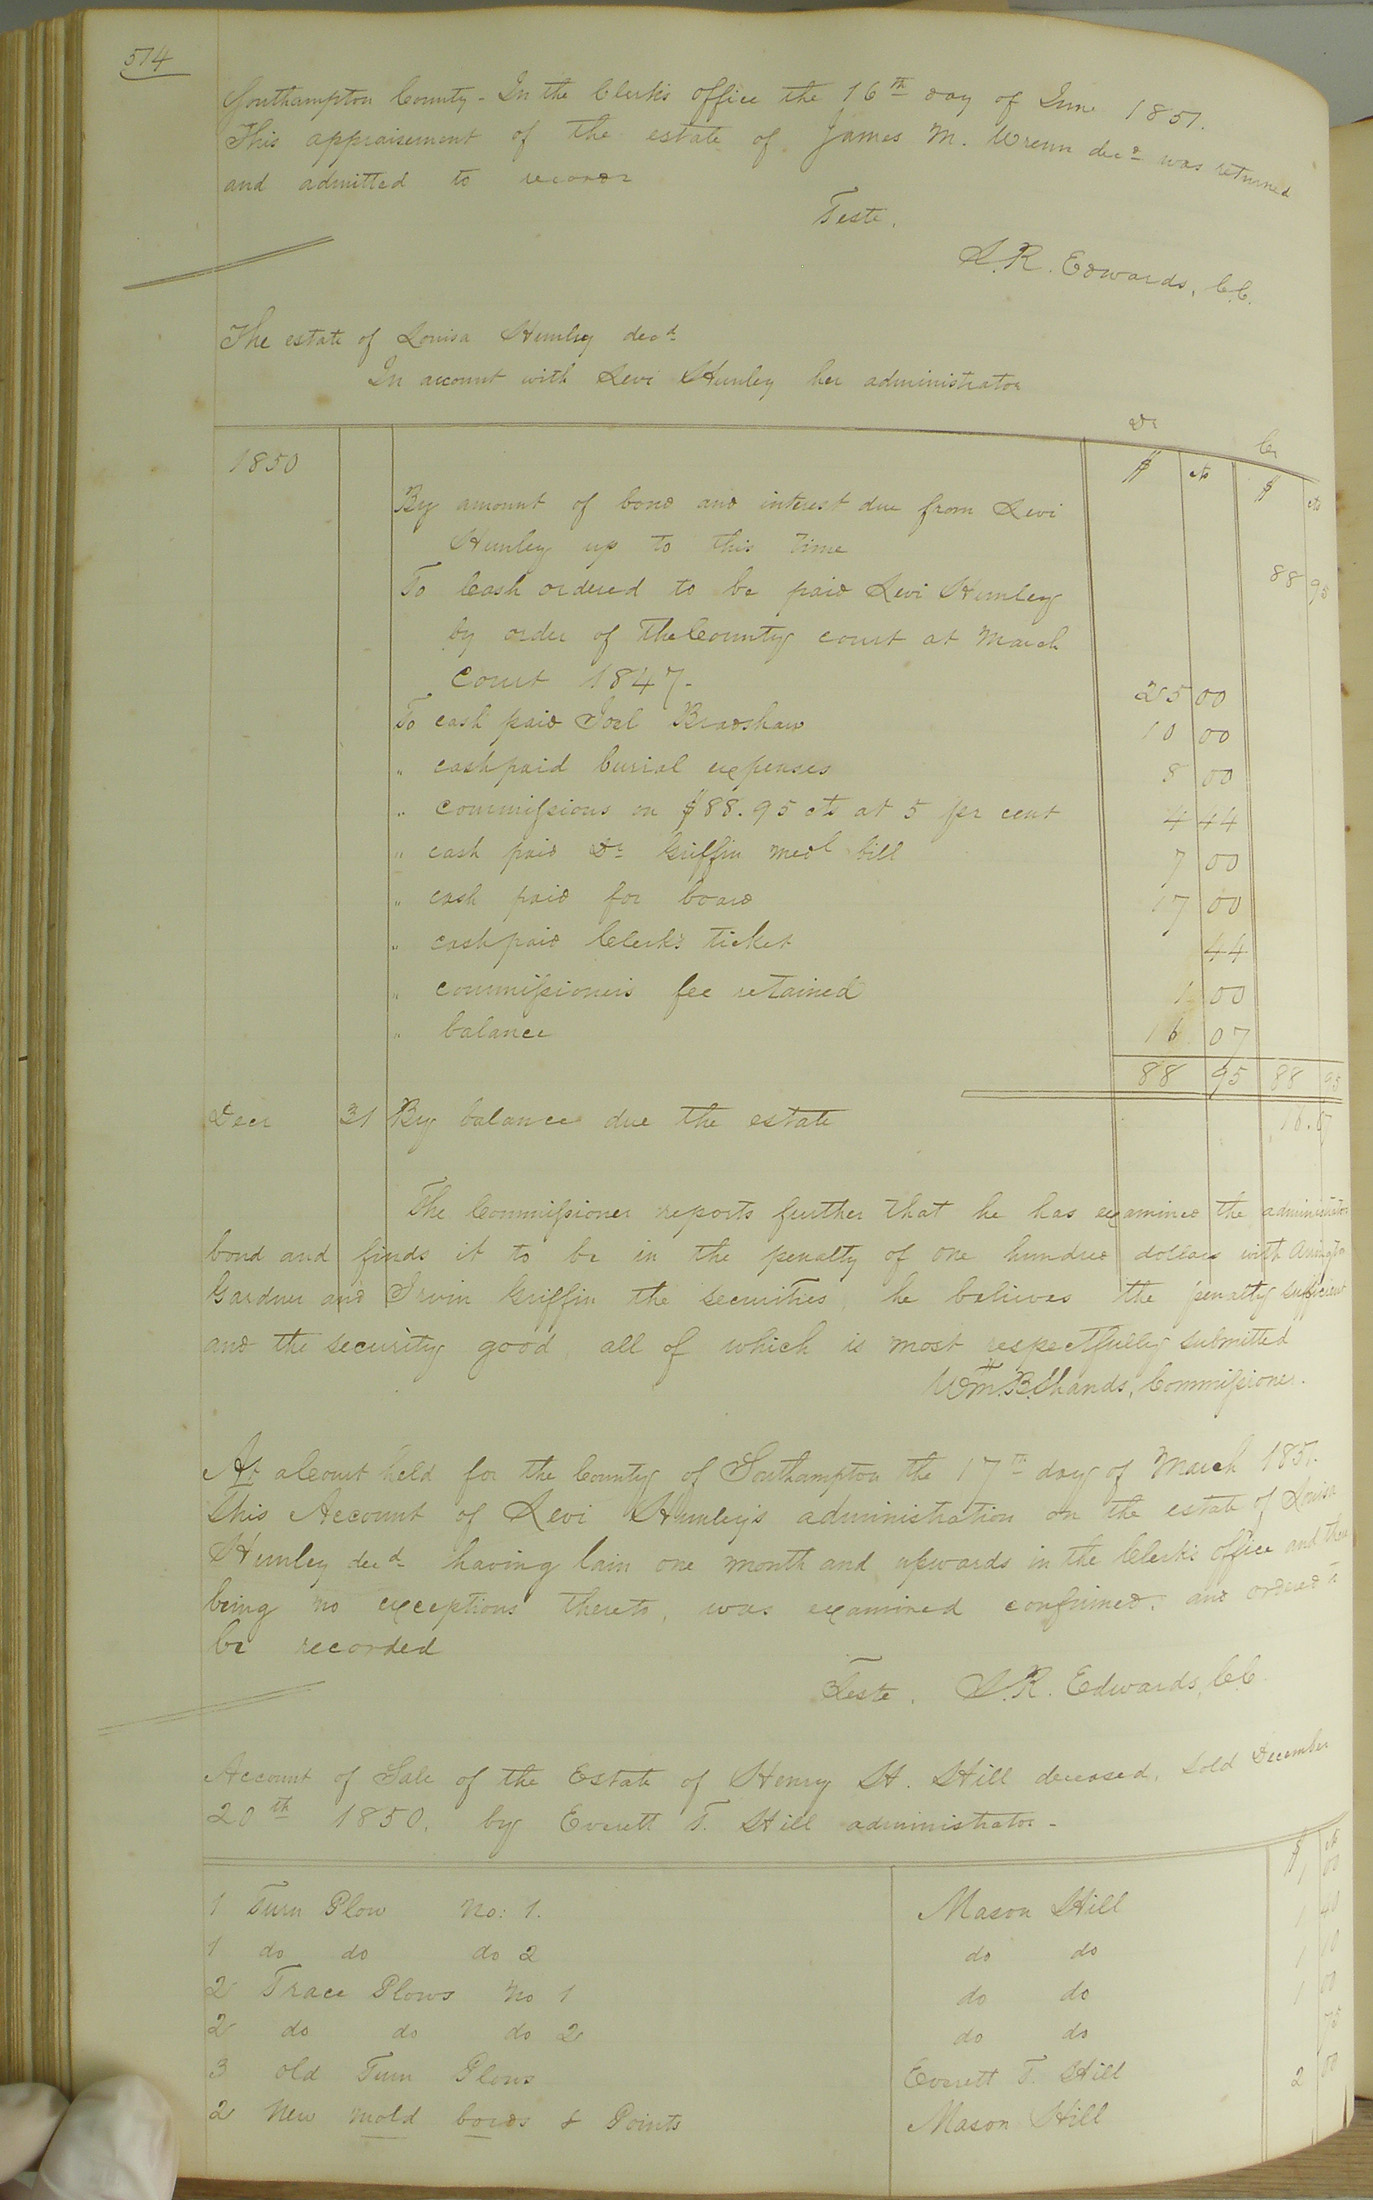 514
Southampton County - In the Clerk's office the 16th day of June 1851.
This appraisement of the estate of James M. Wrenn decd was returned
and admitted to record
Teste.
L.R. Edwards, C.C.
The estate of Louisa Humley decd
In account with Levi Humley her administrator
Dr Cr
1850 $ cts $ cts
By amount of bond and interest due from Levi
Humley up to this time 88 95
To Cash ordered to be paid Levi Humley
by order of the County court at March
Court 1847- 25 00
To cash paid Joel Bradshaw 10 00
" cash paid burial expenses 8 00
" commissions on $88.95 cts at 5 per cent 4 44
" cash paid Dr Griffin medl bill 7 00
" cash paid for board 17 00
" cash paid Clerk's ticket 44
" commissioners fee retained 1 00
" balance 16 07
88 95 88 95
Decr 31 By balance due the estate 16.07
The Commissioner reports further that he has examined the administrators
bond and finds it to be in the penalty of one hundred dollars with Arrington
Gardner and Irvin Griffin the securities, he believes the penalty sufficient
and the security good, all of which is most respectfully submitted
Wm. B. Shands, Commissioner.
At a Court held for the County of Southampton the 17th day of March 1851.
This Account of Levi Humley's administration on the estate of Louisa
Humley decd having lain one month and upwards in the Clerk's office and there
being no exceptions thereto, was examined confirmed, and ordered to
be recorded
Teste. L.R. Edwards, C.C.
Account of Sale of the Estate of Henry H. Hill deceased, sold December
20th 1850, by Everett T. Hill administrator-
$ cts
1 Turn Plow No: 1. Mason Hill 1 00
1 do do do 2 do do 1 40
2 Trace Plows No 1 do do 1 10
2 do do do 2 do do 1 00
3 old Turn Plows Everett T. Hill 75
2 New mold bords & Points Mason Hill 2 00